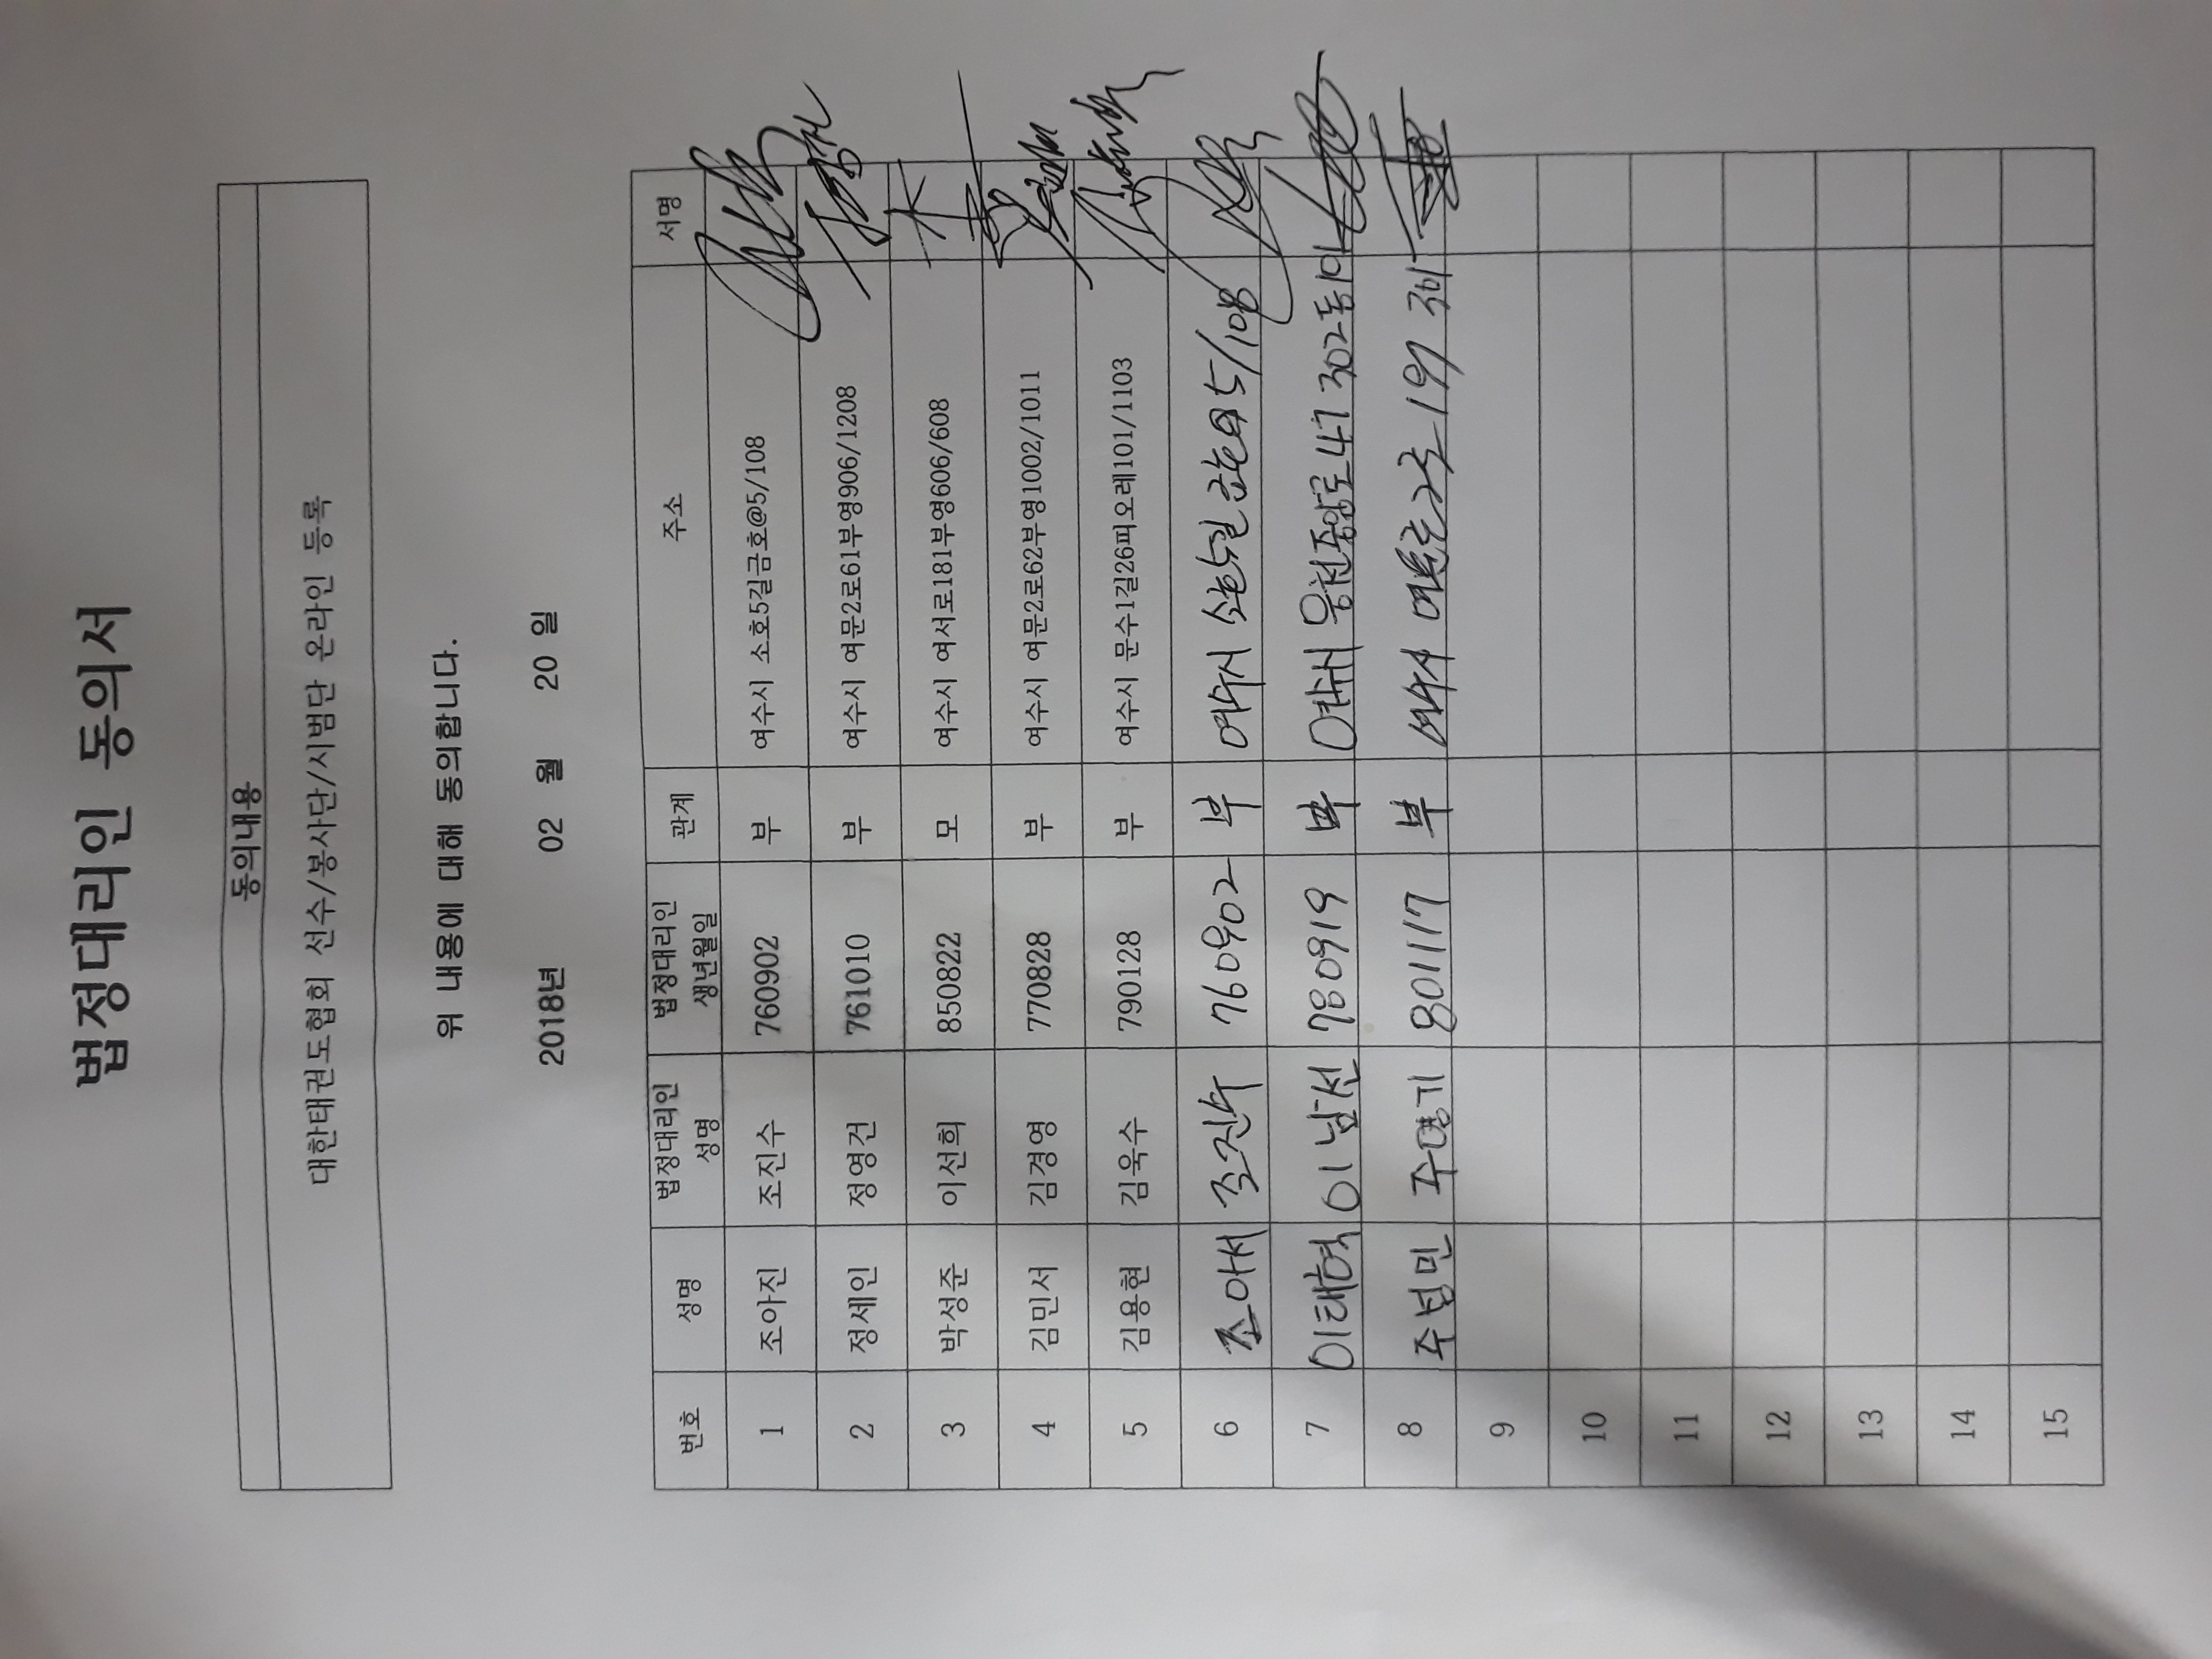 법정대리인 동의서
동의내용
대한태권도협회 선수/봉사단/시범단 온라인 등록
위 내용에 대해 동의합니다.
2018년 02 월 20 일
번호 성명 법정대리인 성명 법정대리인 생년월일 관계 주소 서명
1 조아진 조진수 760902 부 여수시 소호5길금호@5/108
2 정세인 정영건 761010 부 여수시 여문2로61부영906/1208
3 박성준 이선희 850822 모 여수시 여서로181부영606/608
4 김민서 김경영 770828 부 여수시 여문2로62부영1002/1011
5 김용현 김욱수 790128 부 여수시 문수1길26피오레101/1103
6 조아서 조진수 760902 부 여수시 소호5길 금호@5/108
7 이태혁 이남선 780919 부 여수시 웅천중앙로47 302동
8 주녕민 주영기 801117 부 여수시 여문2로 197
9
10
11
12
13
14
15